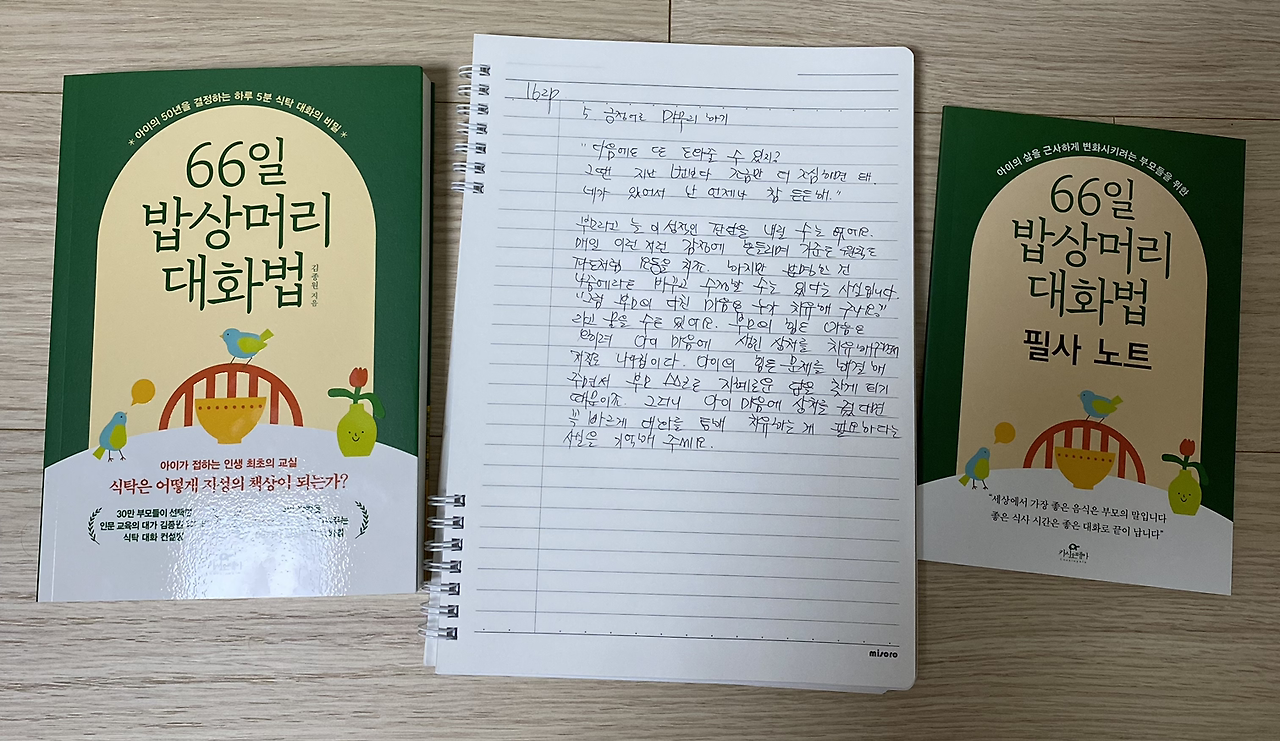 *아이의 50년을 결정하는 하루 5분 식탁 대화의 비밀*
66일
밥상머리
대화법
김종원 지음
아이가 접하는 인생 최초의 교실
식탁은 어떻게 지성의 책상이 되는가?
30만 부모들이 선택한
인문 교육의 대가 김종원
식탁 대화 컨설팅
162p
5. 긍정어로 마무리 하기
"다음에도 또 도와줄 수 있지?
그땐 지난 번보다 조금만 더 조심하면 돼.
네가 있어서 난 언제나 참 든든해."
부모라고 늘 이성적인 판단을 내릴 수는 없어요.
매일 이런 저런 감정에 흔들리며 가준도 원칙도
파도처럼 요동을 치죠. 하지만 분명한 건
나중에라도 바꾸고 수정할 수는 있다는 사실입니다.
"그럼 부모의 다친 마음은 누가 치유해 주나요?"
라고 물을 수도 있어요. 부모의 힘든 마음은
오히려 아이 마음에 생긴 상처를 치유해주면서
저절로 나아집니다. 아이의 힘든 문제를 해결해
주면서 부모 스스로 지혜로운 답을 찾게 되기
때문이죠. 그러니 아이 마음에 상처를 줬다면
꼭 바르게 대화를 통해 치유하는 게 필요하다는
사실을 기억해 주세요.
misoro
아이의 삶을 근사하게 변화시키려는 부모들을 위한
66일
밥상머리
대화법
필사 노트
"세상에서 가장 좋은 음식은 부모의 말입니다
좋은 식사 시간은 좋은 대화로 끝이 납니다"
카시오페아